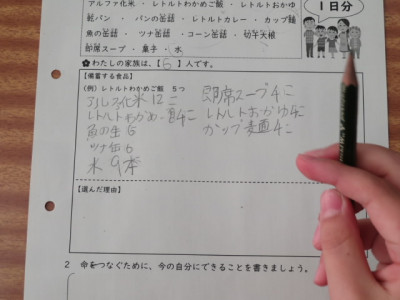 アルファ化米 ・ レトルトわかめご飯 ・ レトルトおかゆ
乾パン ・ パンの缶詰 ・ レトルトカレー ・ カップ麺
魚の缶詰 ・ ツナ缶詰 ・ コーン缶詰 ・ 切干大根
即席スープ ・ 菓子 ・ 水
1日分
✿わたしの家族は、【 5 】人です。
【備蓄する食品】
(例) レトルトわかめご飯 5つ
アルファ化米 12こ
レトルトわかめご飯4こ
魚の缶 6
ツナ缶 6
水 9本
即席スープ4こ
レトルトおかゆ4こ
カップ麺4こ
【選んだ理由】
2 命をつなぐために、今の自分にできることを書きましょう。